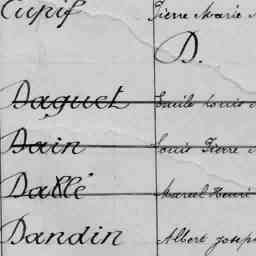 Cupif Pierre Marie
D.
Daguet Emile Louis
Dain Louis Pierre
Dallé Marcel Henri
Dandin Albert Joseph